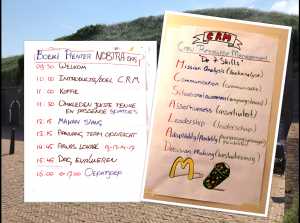 BOEKI MENTER NOBTRA
09:30 WELKOM
10:00 INTRODUCTIE/DOEL C.R.M
11:00 KOFFIE
11:30
12.15 MAKAN SIANG
13.15 PLANNING TEAM OPDRACHT
14.45
15.45 DAG EVALUEREN
16.00 17.00
CRM
Crew Resource Management
De 7 Skills
Mission Analysis (Taakanalyse)
Communication (Communicatie)
Situational awareness
Assertiveness (assertiviteit)
Leadership (leiderschap)
Adaptability/flexibility
Decision Making (besluitvorming)